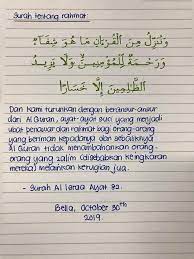 Surah tentang rahmat:
وَنُنَزِّلُ مِنَ الْقُرْءَانِ مَا هُوَ شِفَآءٌ
وَرَحْمَةٌ لِّلْمُؤْمِنِينَ وَلَا يَزِيدُ
الظَّٰلِمِينَ إِلَّا خَسَارًا
Dan Kami turunkan dengan beransur-ansur
dari Al Quran, ayat-ayat suci yang menjadi
ubat penawar dan rahmat bagi orang-orang
yang beriman kepadanya dan sebaliknya
Al Quran tidak menambahkan orang-
orang yang zalim (disebabkan keingkaran
mereka) melainkan kerugian jua.
- Surah Al Israa Ayat 82.
Bella, October 30th
2019.